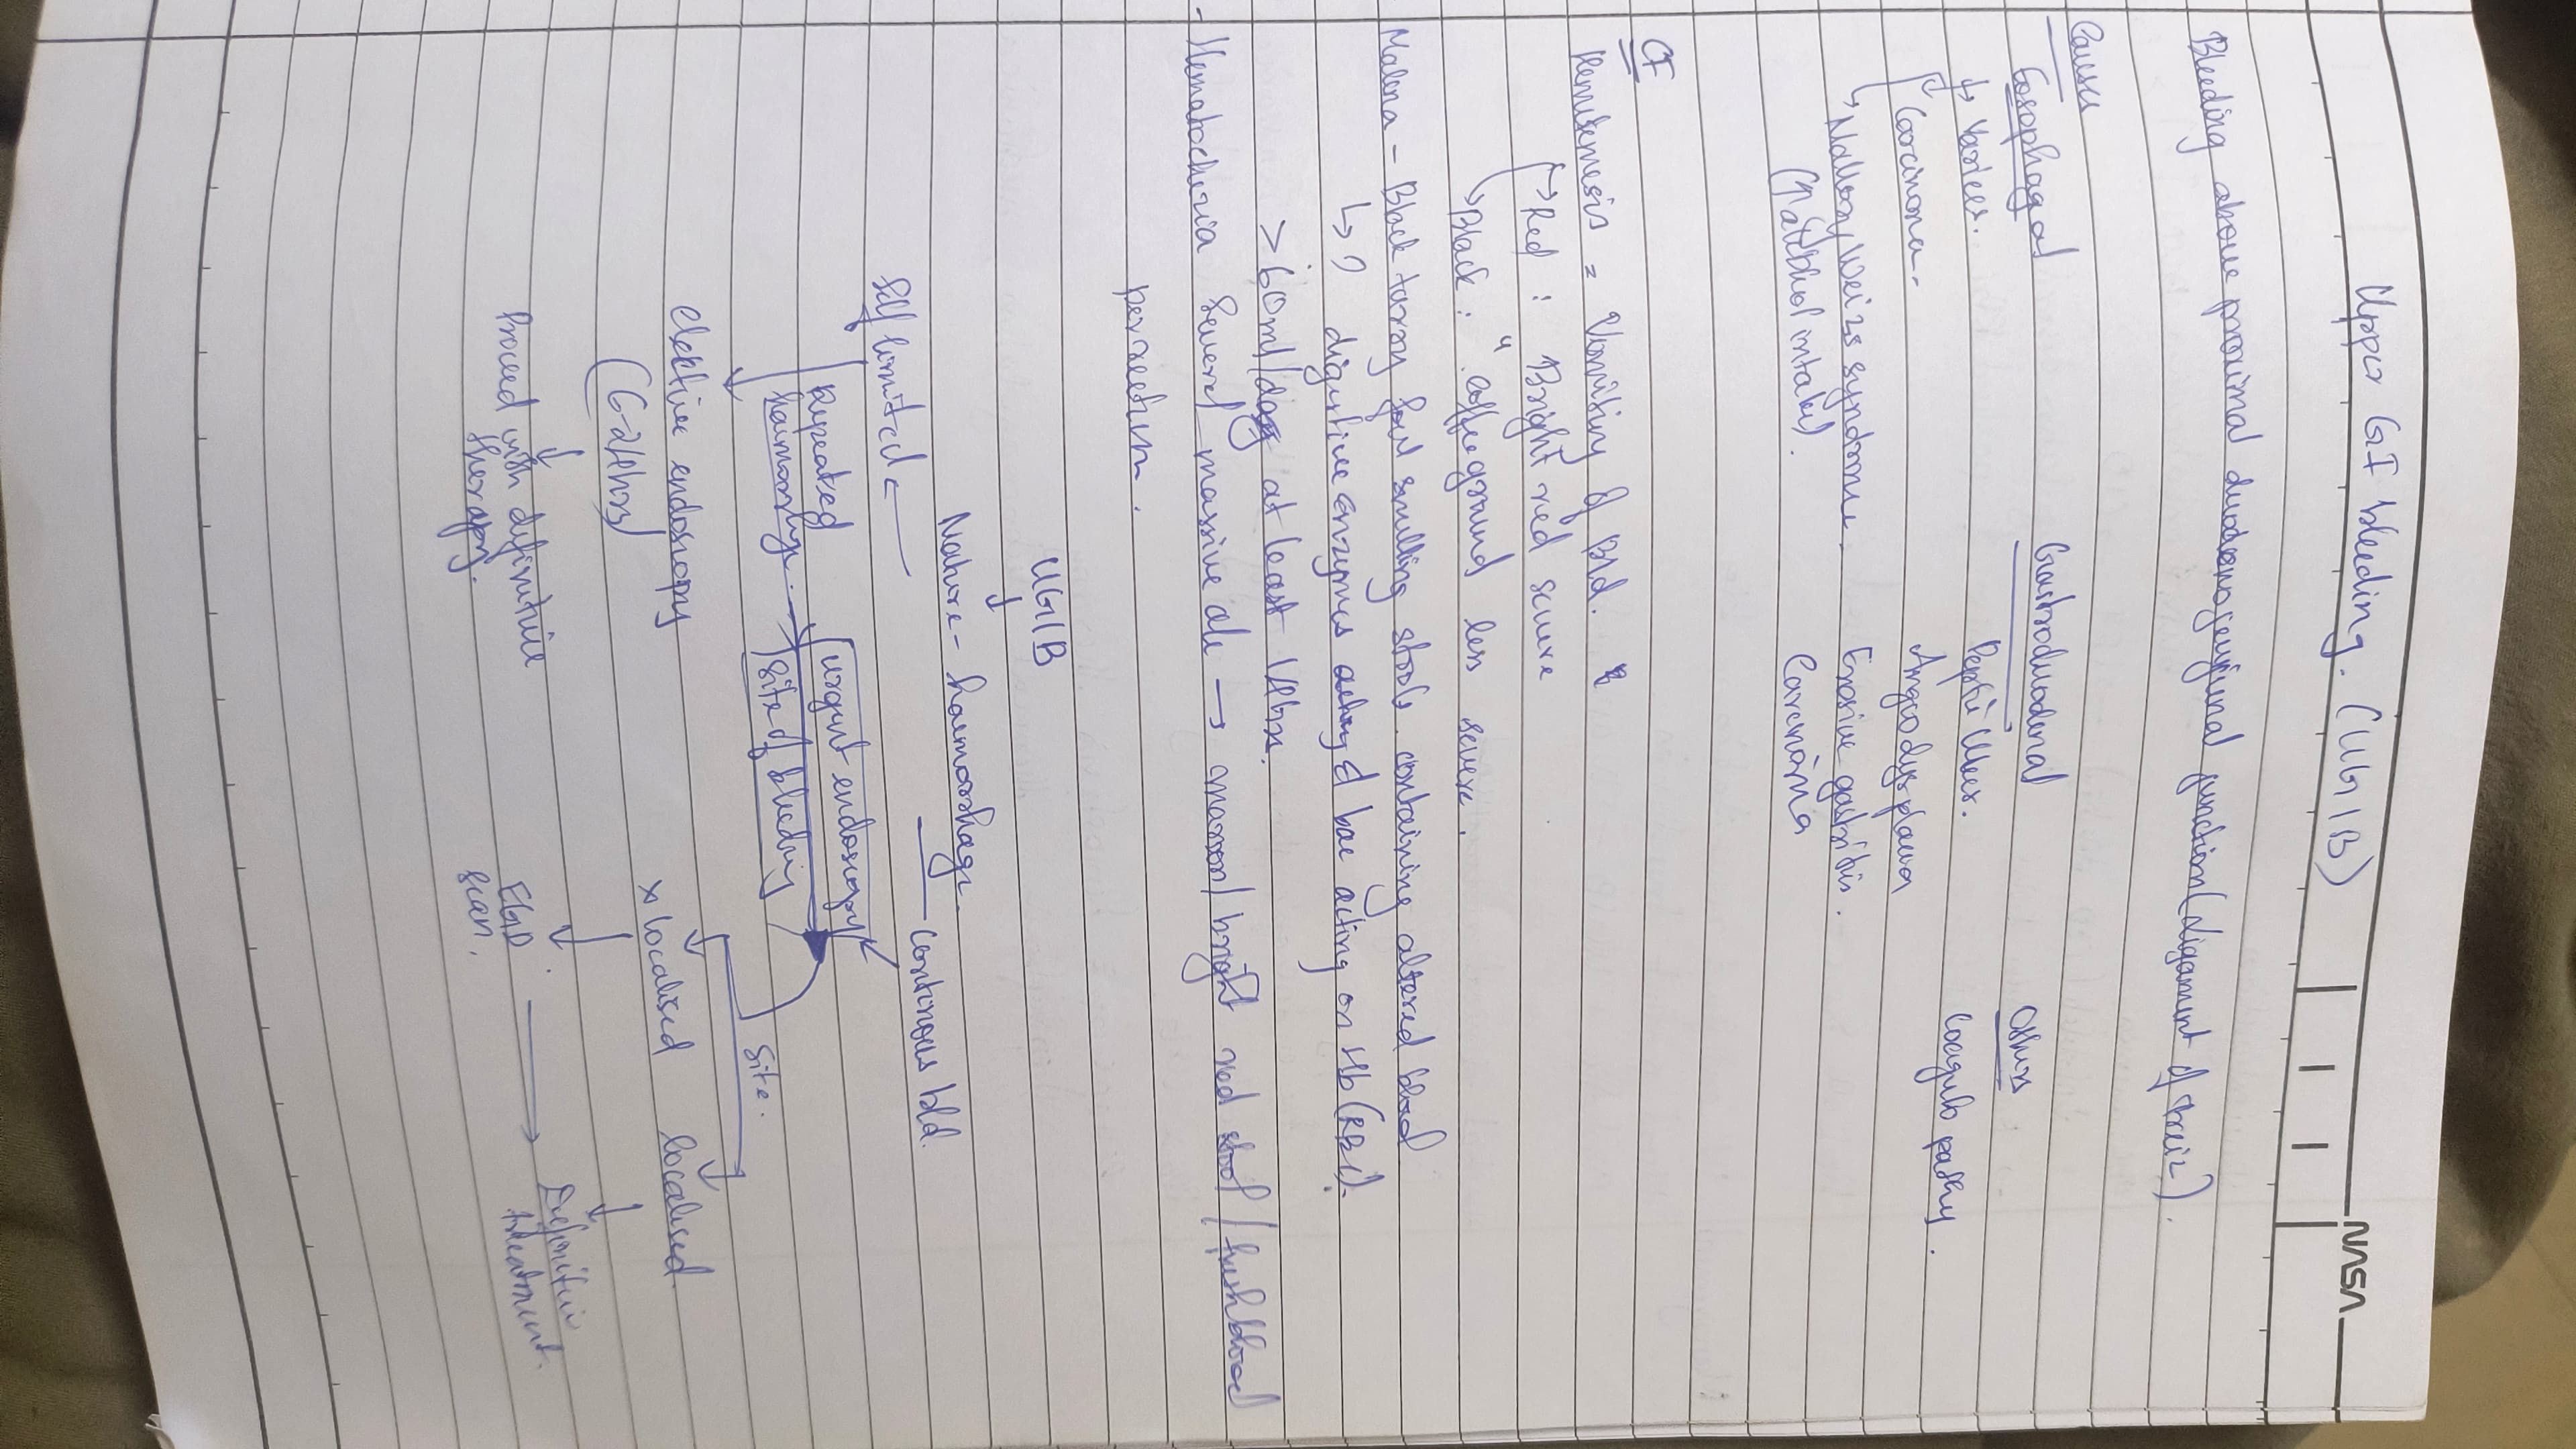 Upper GI bleeding. (UGIB)
NSW
Bleeding above proximal duodenojenjunal junction (Ligament of Treiz).
Causes
Eosophagal Gastroduodenal Others
↳ Varices. Peptic Ulcer. Coagulopathy.
Carcinoma. Angiodysplasia
Mallory Weiss syndrome. Erosive gastritis.
(↑ alcohol intake). Carcinoma
CF
Hemetemesis = Vomiting of Bld.
→ Red : Bright red severe
→ Black : " coffee ground less severe.
Malena - Black tarry foul smelling stools. containing altered blood
↳ digestive enzymes & bac acting on Hb (RBC).
> 60ml/day at least 14hrs.
- Hematochezia Severe/ massive → maroon/ bright red stool / fresh blood
per rectum.
UGIB
↓
Nature - haemorrhage.
Self limited ← continous bld.
Repeated urgent endoscopy
haemorrhge. → Site of bleeding
Site.
elective endoscopy x localised localised.
(6-24hrs)
Proceed with definitive Definitive
therapy. scan. → treatment.